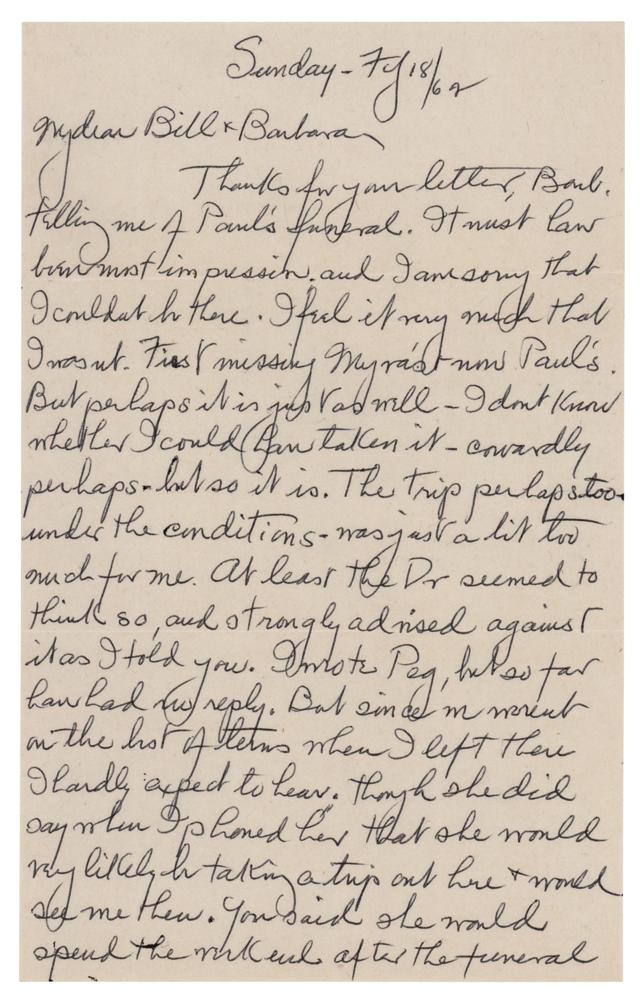 Sunday - Fy 18/62
My dear Bill & Barbara,
Thanks for your letter, Barb.
telling me of Paul's funeral. It must have
been most impressive. and I am sorry that
I couldnt be there. I feel it very much that
I wasnt. First missing Myra's & now Paul's.
But perhaps it is just as well - I dont know
whether I could have taken it - cowardly
perhaps - but so it is. The trip perhaps too -
under the conditions - was just a bit too
much for me. At least the Dr seemed to
think so, and strongly advised against
it as I told you. I wrote Peg, but so far
have had no reply. But since we werent
on the best of terms when I left there
I hardly expect to hear. though she did
say when I phoned her that she would
very likely be taking a trip out here & would
see me then. You said she would
spend the week end after the funeral